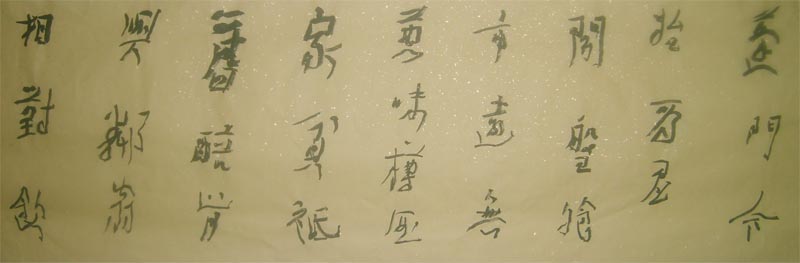 蓬門今
始為君
開盤飧
市遠無
兼味樽酒
家貧祗
舊醅肯
與鄰翁
相對飲